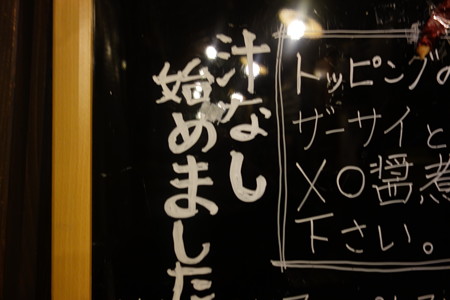 汁なし
始めました
トッピングの
ザーサイと
XO醤煮
下さい。